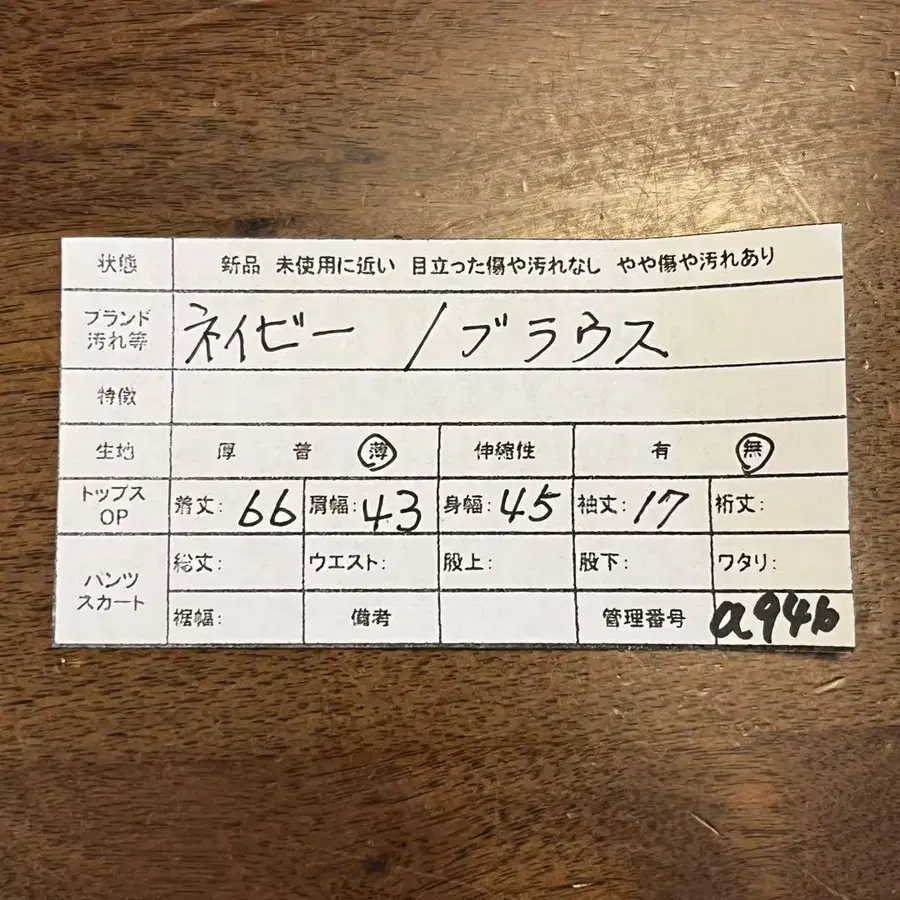 状態 新品 未使用に近い 目立った傷や汚れなし やや傷や汚れあり
ブランド
汚れ等 ネイビー / ブラウス
特徴
生地 厚 普 薄 伸縮性 有 無
トップス
OP 着丈: 66 肩幅: 43 身幅: 45 袖丈: 17 裄丈:
パンツ
スカート 総丈: ウエスト: 股上: 股下: ワタリ:
裾幅: 備考 管理番号 a94b